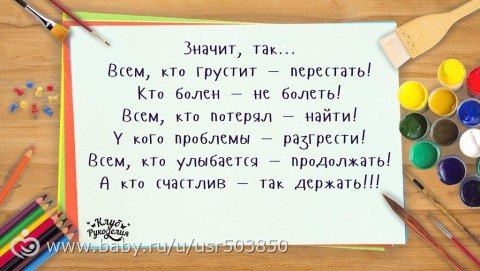 Значит, так...
Всем, кто грустит — перестать!
Кто болен — не болеть!
Всем, кто потерял — найти!
У кого проблемы — разгрести!
Всем, кто улыбается — продолжать!
А кто счастлив — так держать!!!
Клуб
Рукоделия
www.baby.ru/u/usr503850